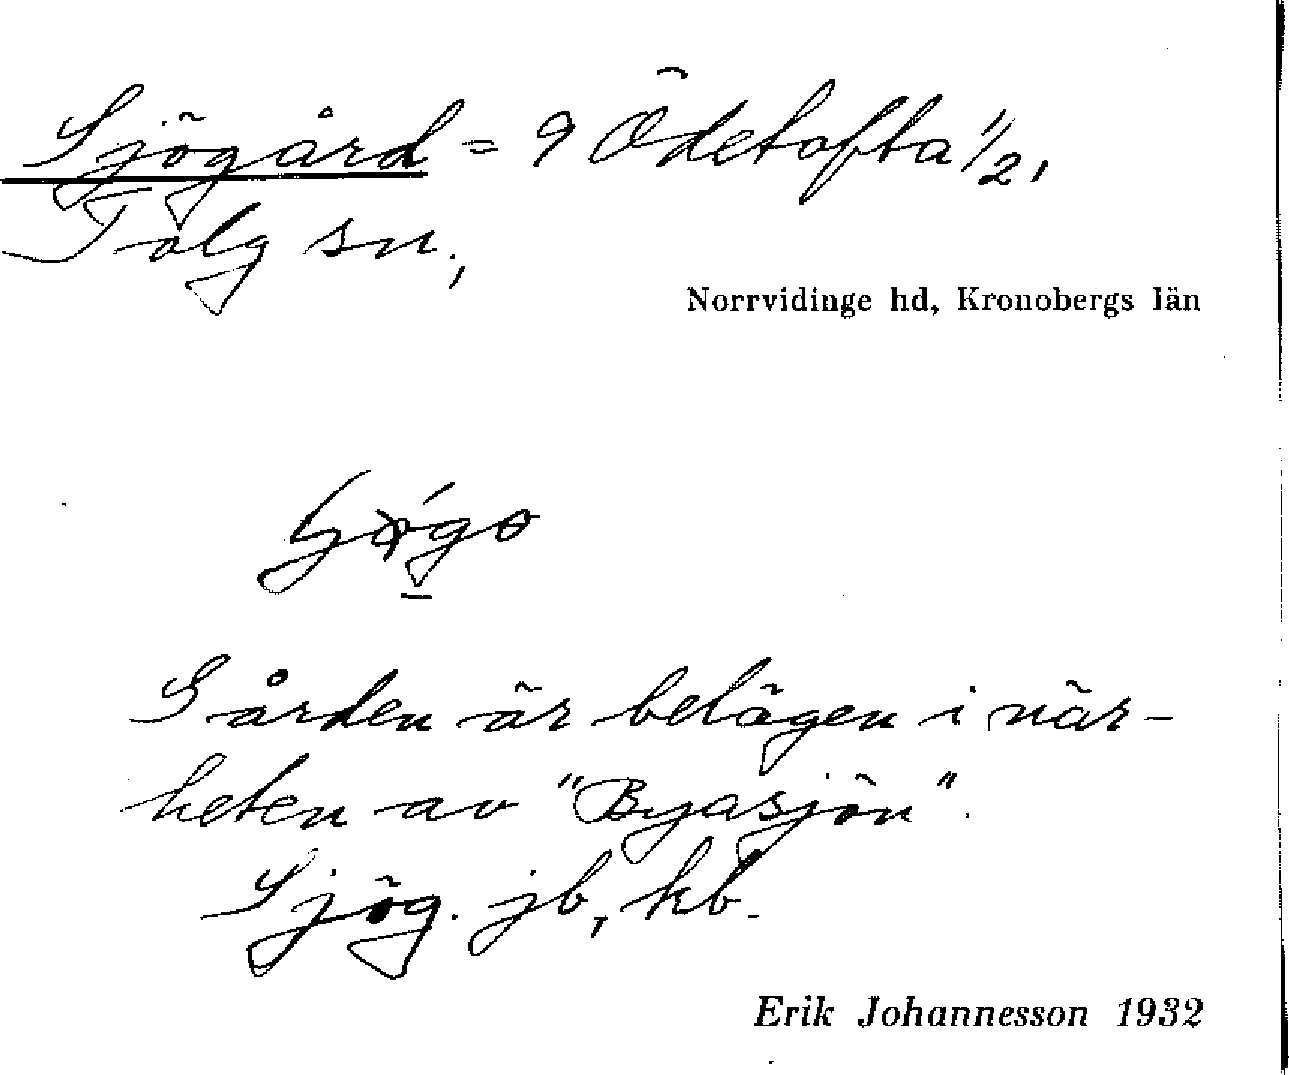 Sjögård = 9 Ödetofta 1/2,
Tolg sn.,
Norrvidinge hd, Kronobergs län
Gården är belägen i när-
heten av "Byasjön".
Sjög. jb, kb.
Erik Johannesson 1932